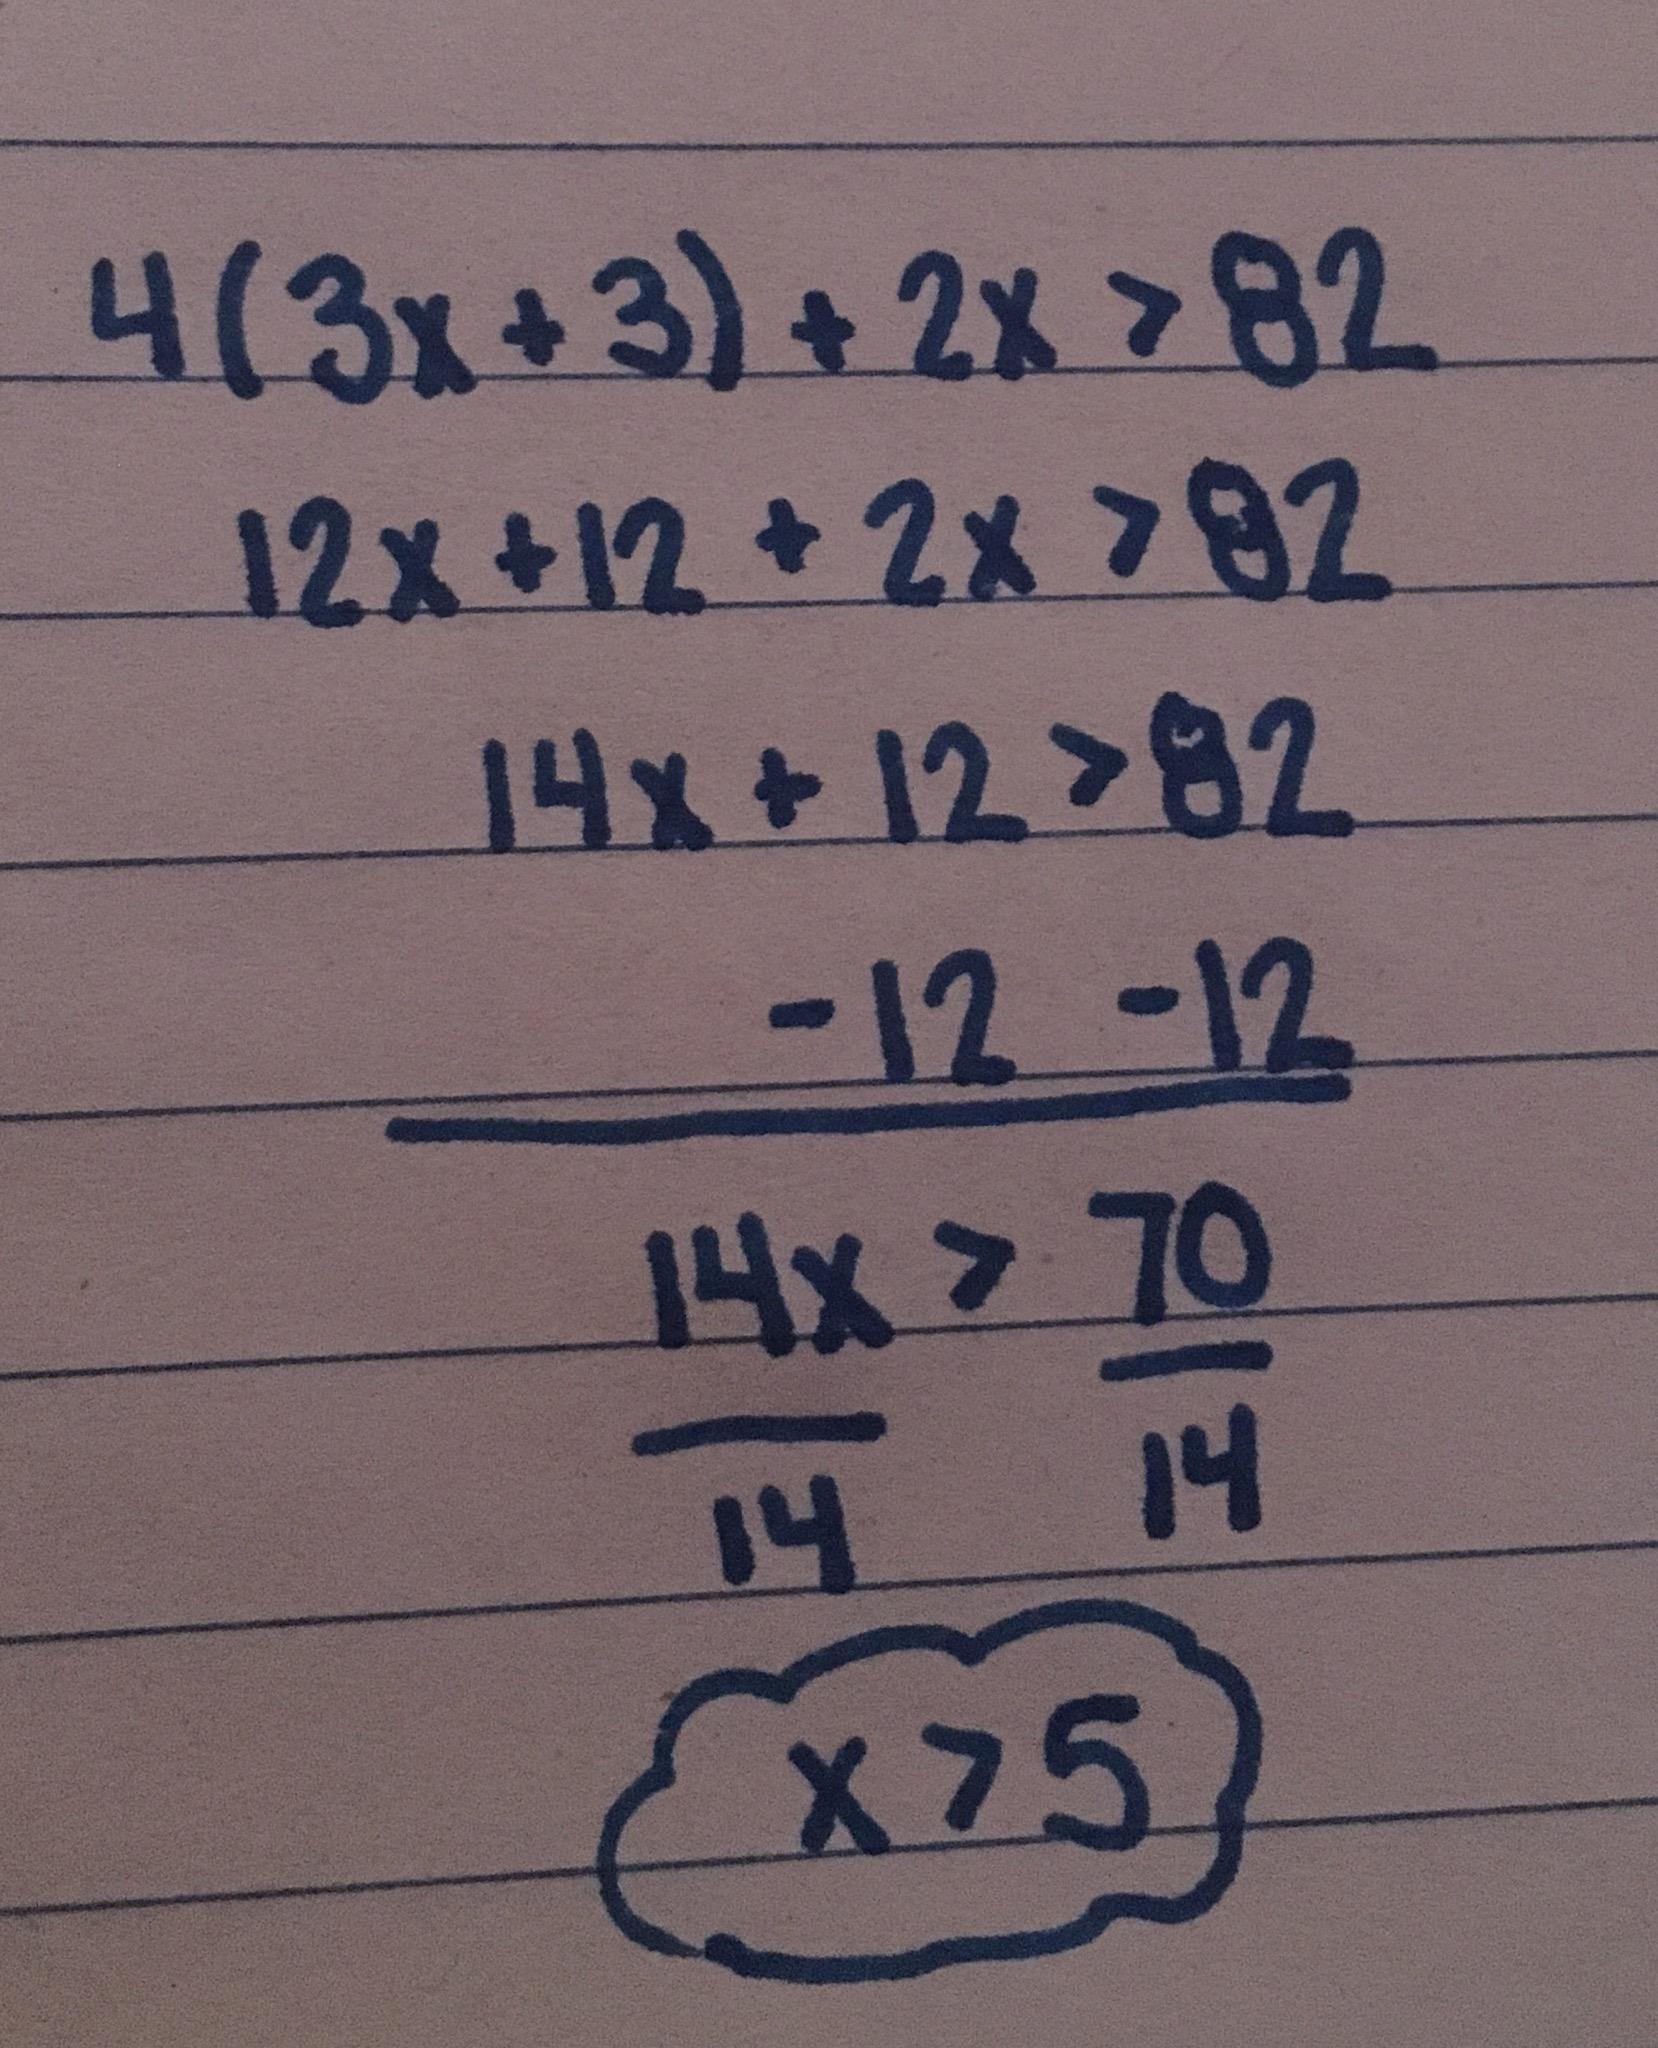 4(3x+3)+2x>82
12x+12+2x>82
14x+12>82
-12 -12
14x > 70
14 14
x>5